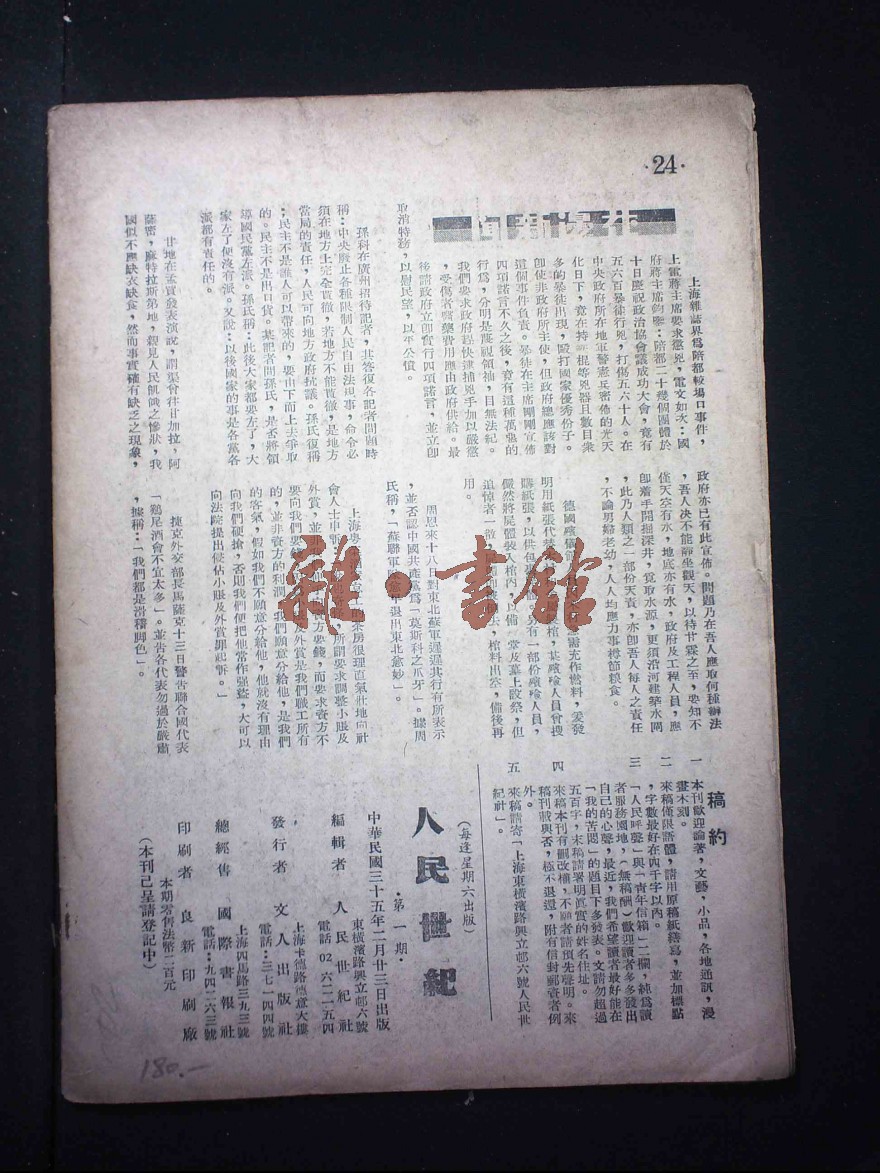 ·24·
上海雜誌界爲陪都較場口事件，
上電蔣主席要求懲兇，電文如次：國
府蔣主席鈞鑒：陪都二十幾個團體於
十日慶祝政治協會議成功大會，竟有
五六百暴徒行兇，打傷五六十人。在
中央政府所在地軍警憲兵密佈的光天
化日下，竟在持鐵棍等兇器且數目衆
多的暴徒出現，毆打國家優秀份子。
卽使非政府所主使，但政府總應該對
這個事件負責。暴徒在主席剛剛宣佈
四項諾言不久之後，竟有這種萬惡的
行爲，分明是藐視領袖，目無法紀。
我們要求政府趕快逮捕兇手加以嚴懲
，受傷者醫藥費用應由政府供給。最
後請政府立卽實行四項諾言，並立卽
取消特務，以慰民望，以平公憤。
孫科在廣州招待記者，其答復各記者問題時
稱：中央廢止各種限制人民自由法規事，命令必
須在地方上完全貫徹，若地方不能貫徹，是地方
當局的責任，人民可向地方政府抗議。孫氏復稱
：民主不是誰人可以帶來的，要由下而上去爭取
的。民主不是出口貨。某記者問孫氏，是否將領
導國民黨左派。孫氏稱：此後大家都要左了，大
家左了便沒有派。又說：以後國家的事是各黨各
派都有責任的。
甘地在孟買發表演說，謂渠曾往甘加拉，阿
薩密，麻特拉斯第地，親見人民飢饑之慘狀，我
國似不應缺衣缺食，然而事實確有缺乏之現象，
政府亦已有此宣佈。問題乃在吾人應取何種辦法
，吾人决不能靜坐觀天，以待甘霖之至，要知不
僅天空有水，地底亦有水，政府及工程人員，應
卽着手開掘深井，覓取水源，更須沿河建築水閘
，此乃人類之一部份天責，亦卽吾人每人之責任
，不論男婦老幼，人人均應力事樽節粮食。
明用紙張代替
用。
周恩來十八日對東北蘇軍遲遲其行有所表示
，並否認中國共產黨爲「莫斯科之爪牙」。據周
氏稱，「蘇聯軍
退出東北愈妙」。
茶房很理直氣壯地向社
外賞，並
要錢，而要求資方不
的，並非資方的利潤
我們願意分給他，是我們
的客氣，假如我們不願意分給他，他就沒有理由
向我們硬搶，否則我們便把他當作强盜，大可以
向法院提出侵佔小賬及外賞罪起訴。」
捷克外交部長馬薩克十三日警告聯合國代表
「鷄尾酒會不宜太多」。並告各代表勿過於嚴肅
，據稱：「我們都是滑稽脚色」。
稿約
一　本刊歡迎論著，文藝，小品，各地通訊，漫
畫木刻。
二　來稿僅限語體，請用原稿紙繕寫，並加標點
，字數最好在四千字以內。
三　「人民呼聲」與「靑年信箱」二欄，純爲讀
者服務園地，（無稿酬）歡迎讀者多多發出
自己的心聲，最近，我們希望讀者最好能在
「我的苦悶」的題目下多發表。文請勿超過
五百字，末稿請署明眞實的姓名住址。
四　來稿本刊有刪改權，不願者請預先聲明。來
稿刊載與否，極不退還，附有信封郵資者例
外。
五　來稿請寄「上海東橫濱路興立邨六號人民世
紀社」。
（每逢星期六出版）
人民世紀
·第一期·
中華民國三十五年二月廿三日出版
東橫濱路興立邨六號
編輯者　人民世紀社
電話 02 六二一五四
發行者　文人出版社
上海卡德路德意大樓
電話：三七一四四號
總經售　國際書報社
上海四馬路三九三號
電話：九四二六三號
印刷者　良新印刷廠
本期零售法幣二百元
（本刊已呈請登記中）
180.-
雜·書館